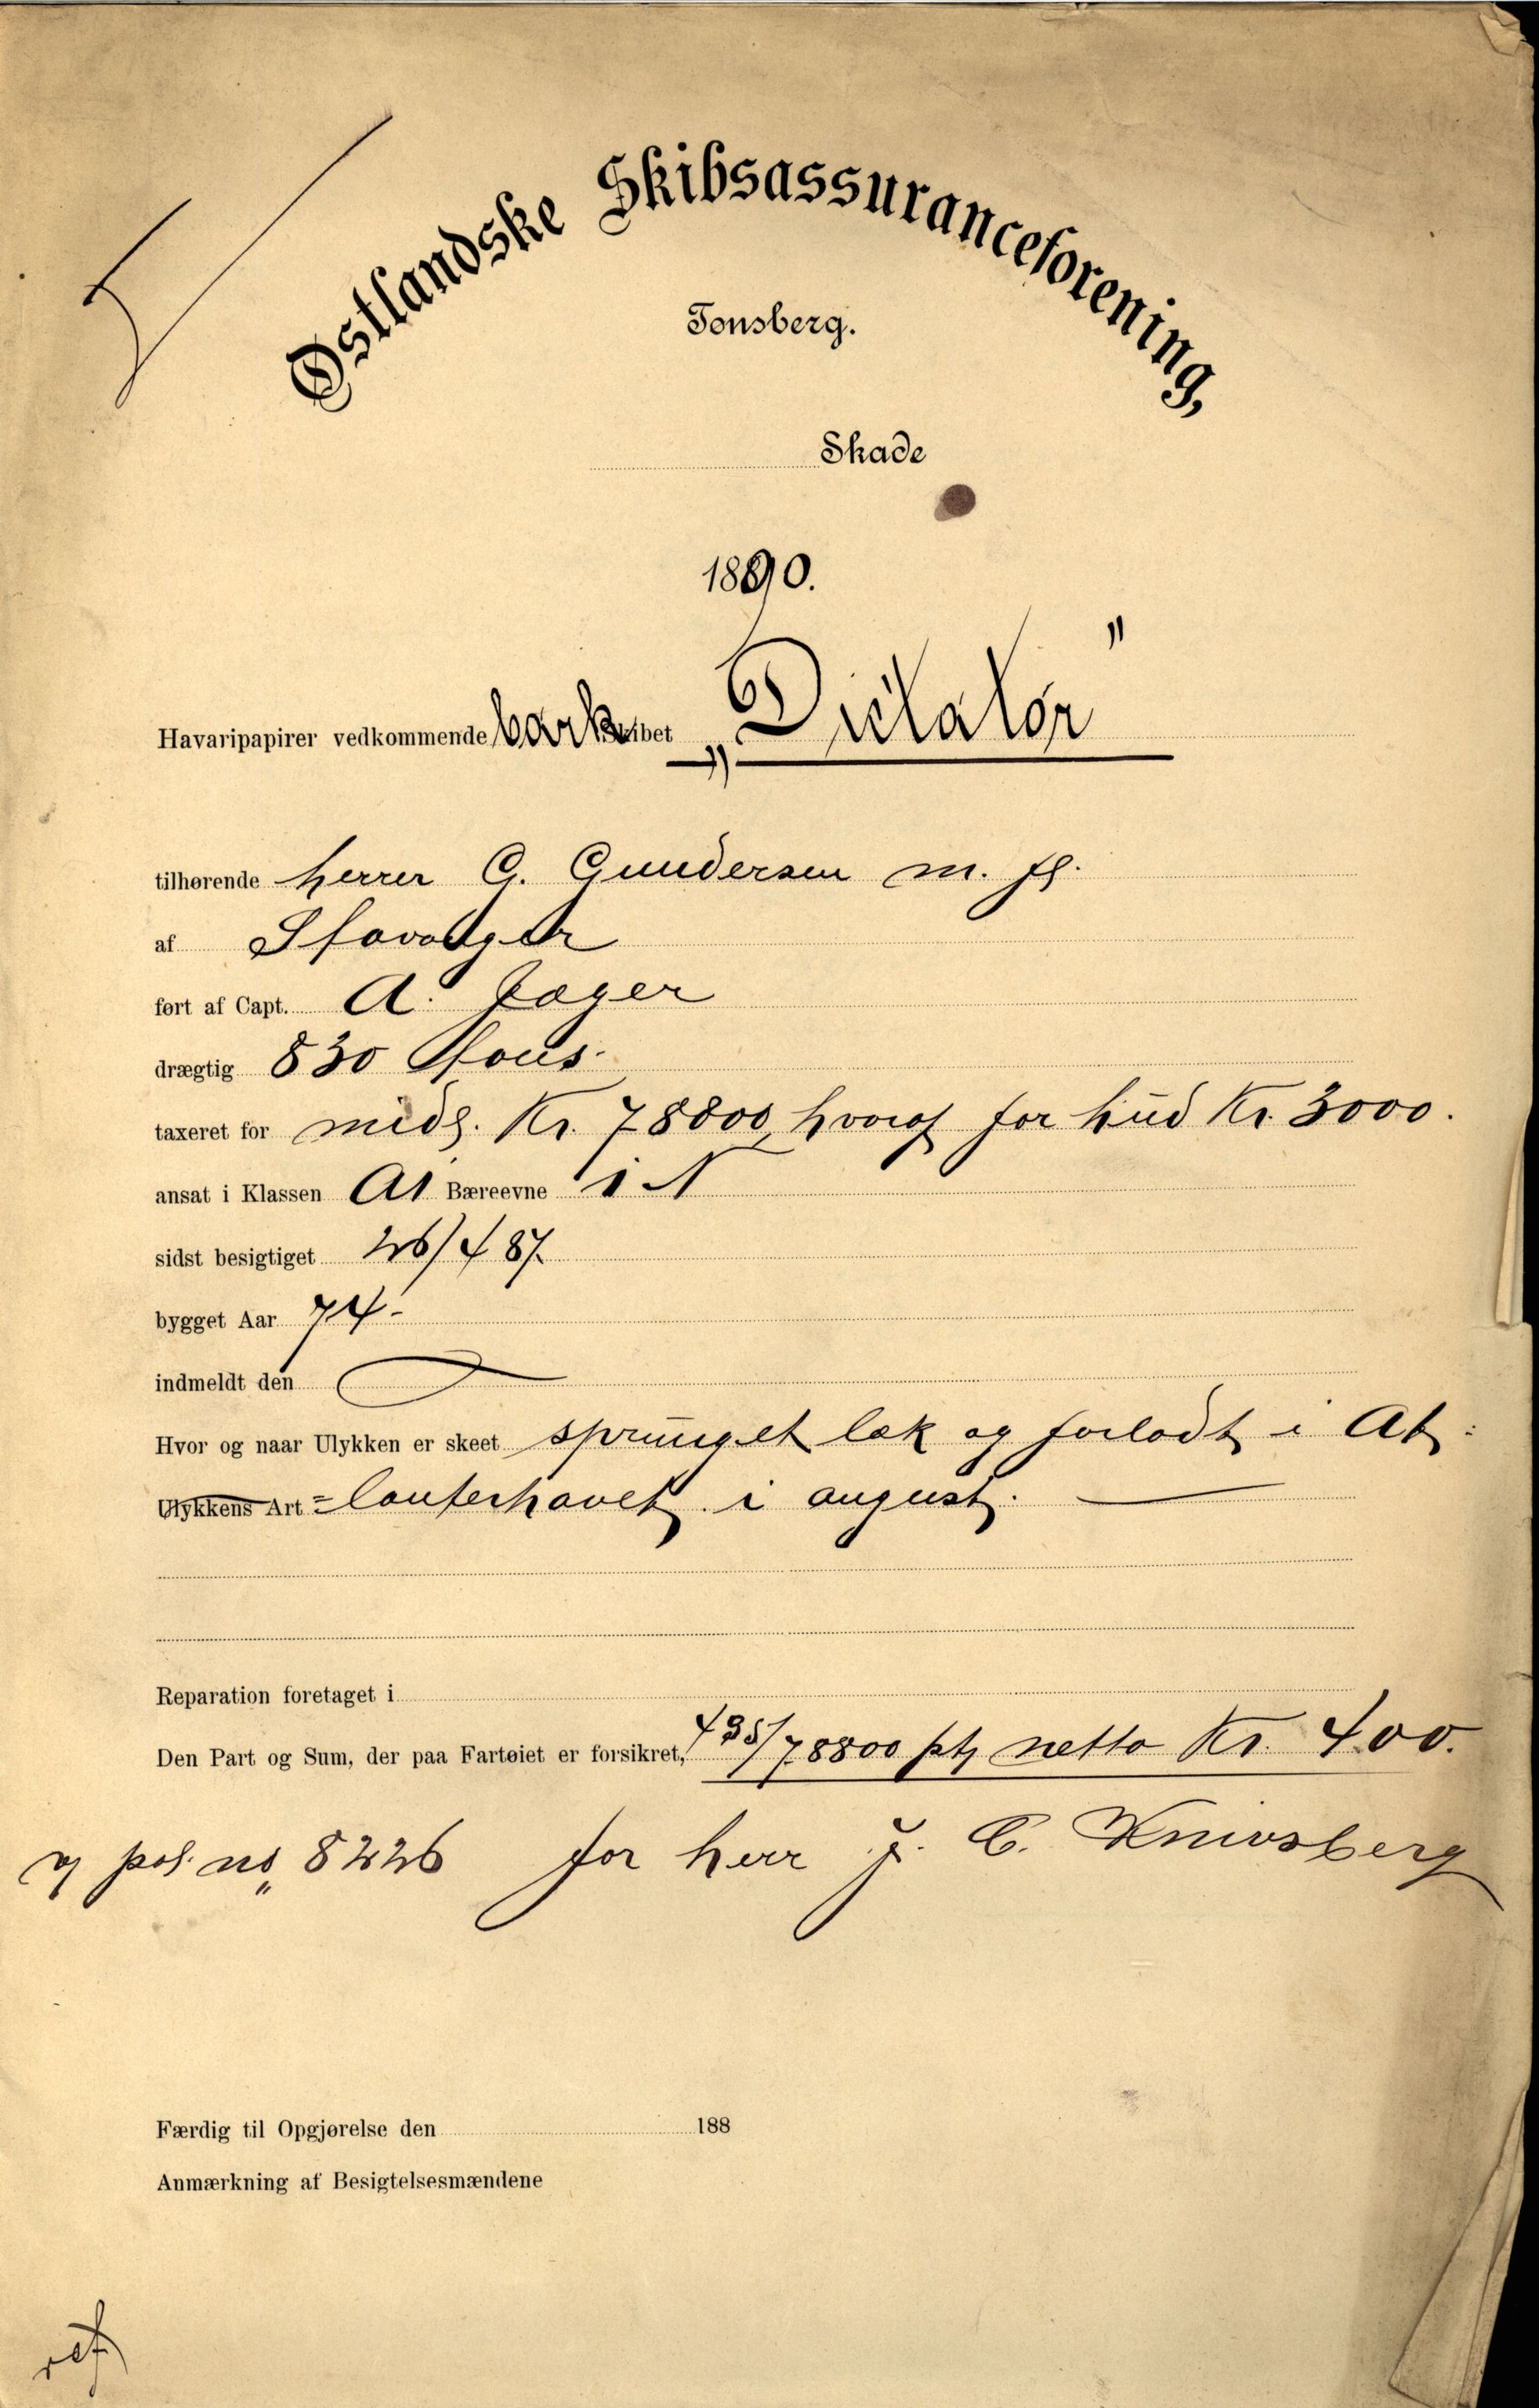 Østlandske Skibsassuranceforening,
Tønsberg.
Skade
1890.
Havaripapirer vedkommende bark Skibet „Dictator"
tilhørende herrer G. Gundersen m. fl.
af Stavanger
ført af Capt. A. Jæger
drægtig 830 Tons.
taxeret for midl. Kr. 78800, hvoraf for hud Kr. 3000.
ansat i Klassen A1 Bæreevne 1 N
sidst besigtiget 26/4 87.
bygget Aar 74.
indmeldt den
Hvor og naar Ulykken er skeet sprunget læk og forladt i At:
Ulykkens Art =lanterhavet i august.
Reparation foretaget i
Den Part og Sum, der paa Fartøiet er forsikret, 435/78800 pt, netto Kr. 400.
pol. no 8226 for herr J. C. Knivsberg
Færdig til Opgjørelse den 188
Anmærkning af Besigtelsesmændene